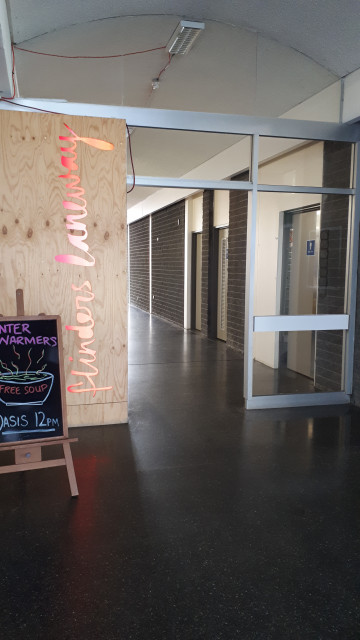 flinders laneway
NTER
WARMERS
FREE SOUP
OASIS 12PM